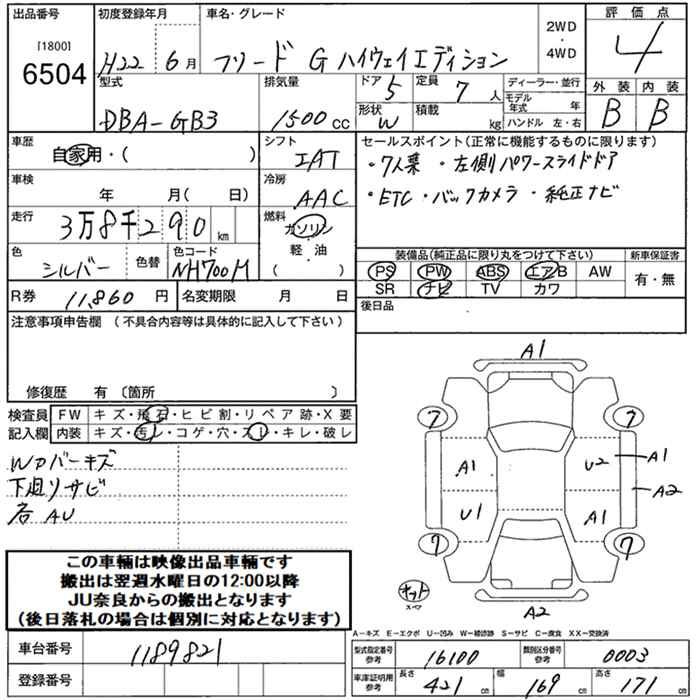 出品番号 初度登録年月 車名・グレード 評価点
[1800]
6504
H22 6月 フリード G ハイウェイエディション 2WD・4WD 4
型式 排気量 ドア 5 定員 7人 ディーラー・並行 外装 内装
DBA-GB3 1500cc 形状 W 積載 kg モデル年式 年 B B
ハンドル 左・右
車歴 シフト セールスポイント(正常に機能するものに限ります)
自家用・( ) IAT ・7人乗 ・左側パワースライドドア
車検 冷房 ・ETC・バックカメラ・純正ナビ
年 月( 日) AAC
走行 燃料
3万8千290km ガソリン
軽油
・( )
装備品(純正品に限り丸をつけて下さい) 新車保証書
色 色替 色コード PS PW ABS エアB AW 有・無
シルバー NH700M SR ナビ TV カワ
R券 11,860円 名変期限 月 日 後日品
注意事項申告欄 (不具合内容等は具体的に記入して下さい)
修復歴 有 〔箇所 〕
検査員 FW キズ・飛石・ヒビ割・リペア跡・X要
記入欄 内装 キズ・汚レ・コゲ・穴・スレ・キレ・破レ
Wカバーキズ
下廻リサビ
各AU
A1
7 7
A1 U2 A1
A2
U1 A1
7 7
スペア
A2
この車輌は映像出品車輌です
搬出は翌週水曜日の12:00以降
JU奈良からの搬出となります
(後日落札の場合は個別に対応となります)
A-キズ E-エクボ U-凹み W-補修跡 S-サビ C-腐食 XX-交換済
車台番号 1189821
型式指定番号参考 16100 類別区分番号参考 0003
登録番号
車庫証明用参考 長さ 421cm 幅 169cm 高さ 171cm